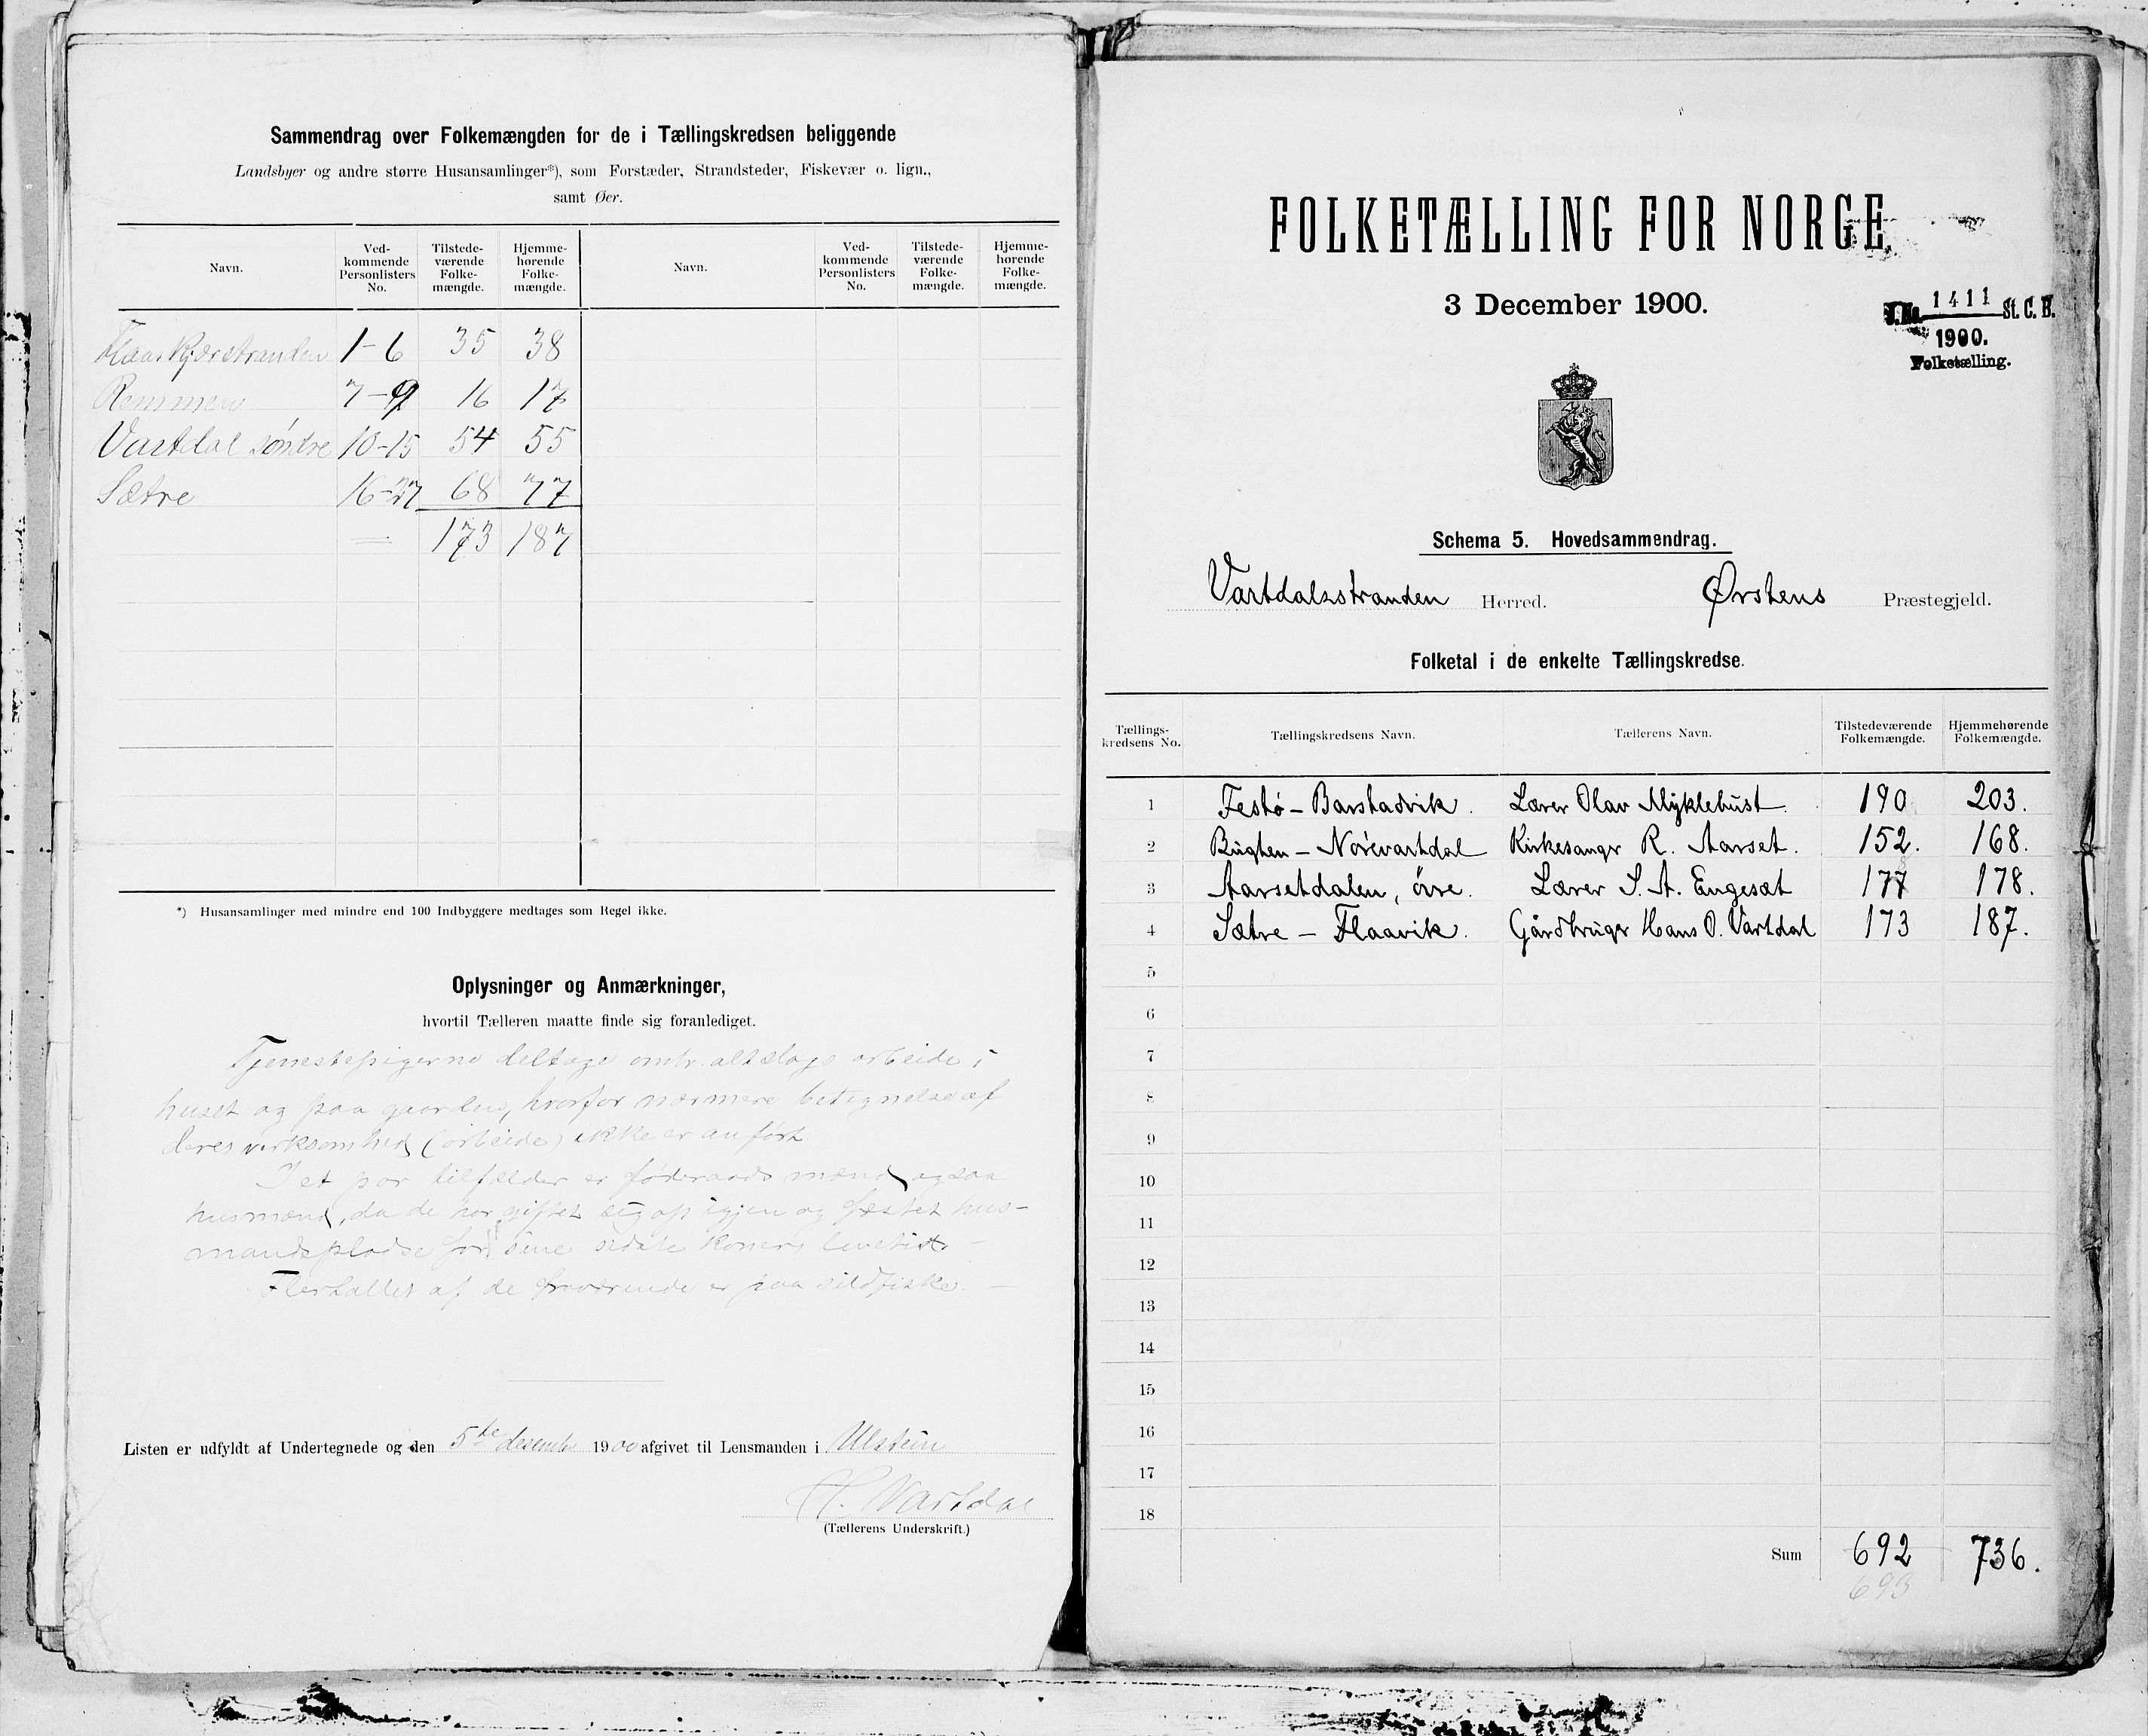 Sammendrag over Folkemængden for de i Tællingskredsen beliggende
Landsbyer og andre større Husansamlinger*), som Forstæder, Strandsteder, Fiskevær o. lign.,
samt Øer.
Navn. Ved-kommende Personlisters No. Tilstede-værende Folke-mængde. Hjemme-hørende Folke-mængde. Navn. Ved-kommende Personlisters No. Tilstede-værende Folke-mængde. Hjemme-hørende Folke-mængde.
Flaaskjærstranden 1-6 35 38
Remmen 7-9 16 17
Vartdal söndre 10-15 54 55
Sætre 16-27 68 77
173 187
*) Husansamlinger med mindre end 100 Indbyggere medtages som Regel ikke.
Oplysninger og Anmærkninger,
hvortil Tælleren maatte finde sig foranlediget.
Tjenestepigerne deltage omtr. altslags arbeide i
huset og paa gaarden, hvorfor nærmere betegnelse af
deres virksomhed (arbeide) ikke er anført
I et par tilfælder er føderaads mænd ogsaa
husmænd, da de har giftet sig op igjen og fæstet hus-
mandspladse for sine sidste koners levetid. –
Flertallet af de fraværende er paa sildfiske. –
Listen er udfyldt af Undertegnede og den 5te desember 1900 afgivet til Lensmanden i Ulstein
H. Vartdal
(Tællerens Underskrift.)
FOLKETÆLLING FOR NORGE
3 December 1900.
J. No. 1411 St. C. B.
1900.
Folketælling.
Schema 5. Hovedsammendrag.
Vartdalsstranden Herred. Ørstens Præstegjeld.
Folketal i de enkelte Tællingskredse.
Tællings-kredsens No. Tællingskredsens Navn. Tællerens Navn. Tilstedeværende Folkemængde. Hjemmehørende Folkemængde.
1 Festö – Barstadvik. Lærer Olav Myklebust 190 203.
2 Bugten – Nörevartdal Kirkesanger R. Aarset. 152. 168.
3 Aarsetdalen, övre. Lærer S. A. Engesæt 177 178.
4 Sætre – Flaavik. Gårdbruger Hans O. Vartdal 173 187.
5
6
7
8
9
10
11
12
13
14
15
16
17
18
Sum 692 736.
693